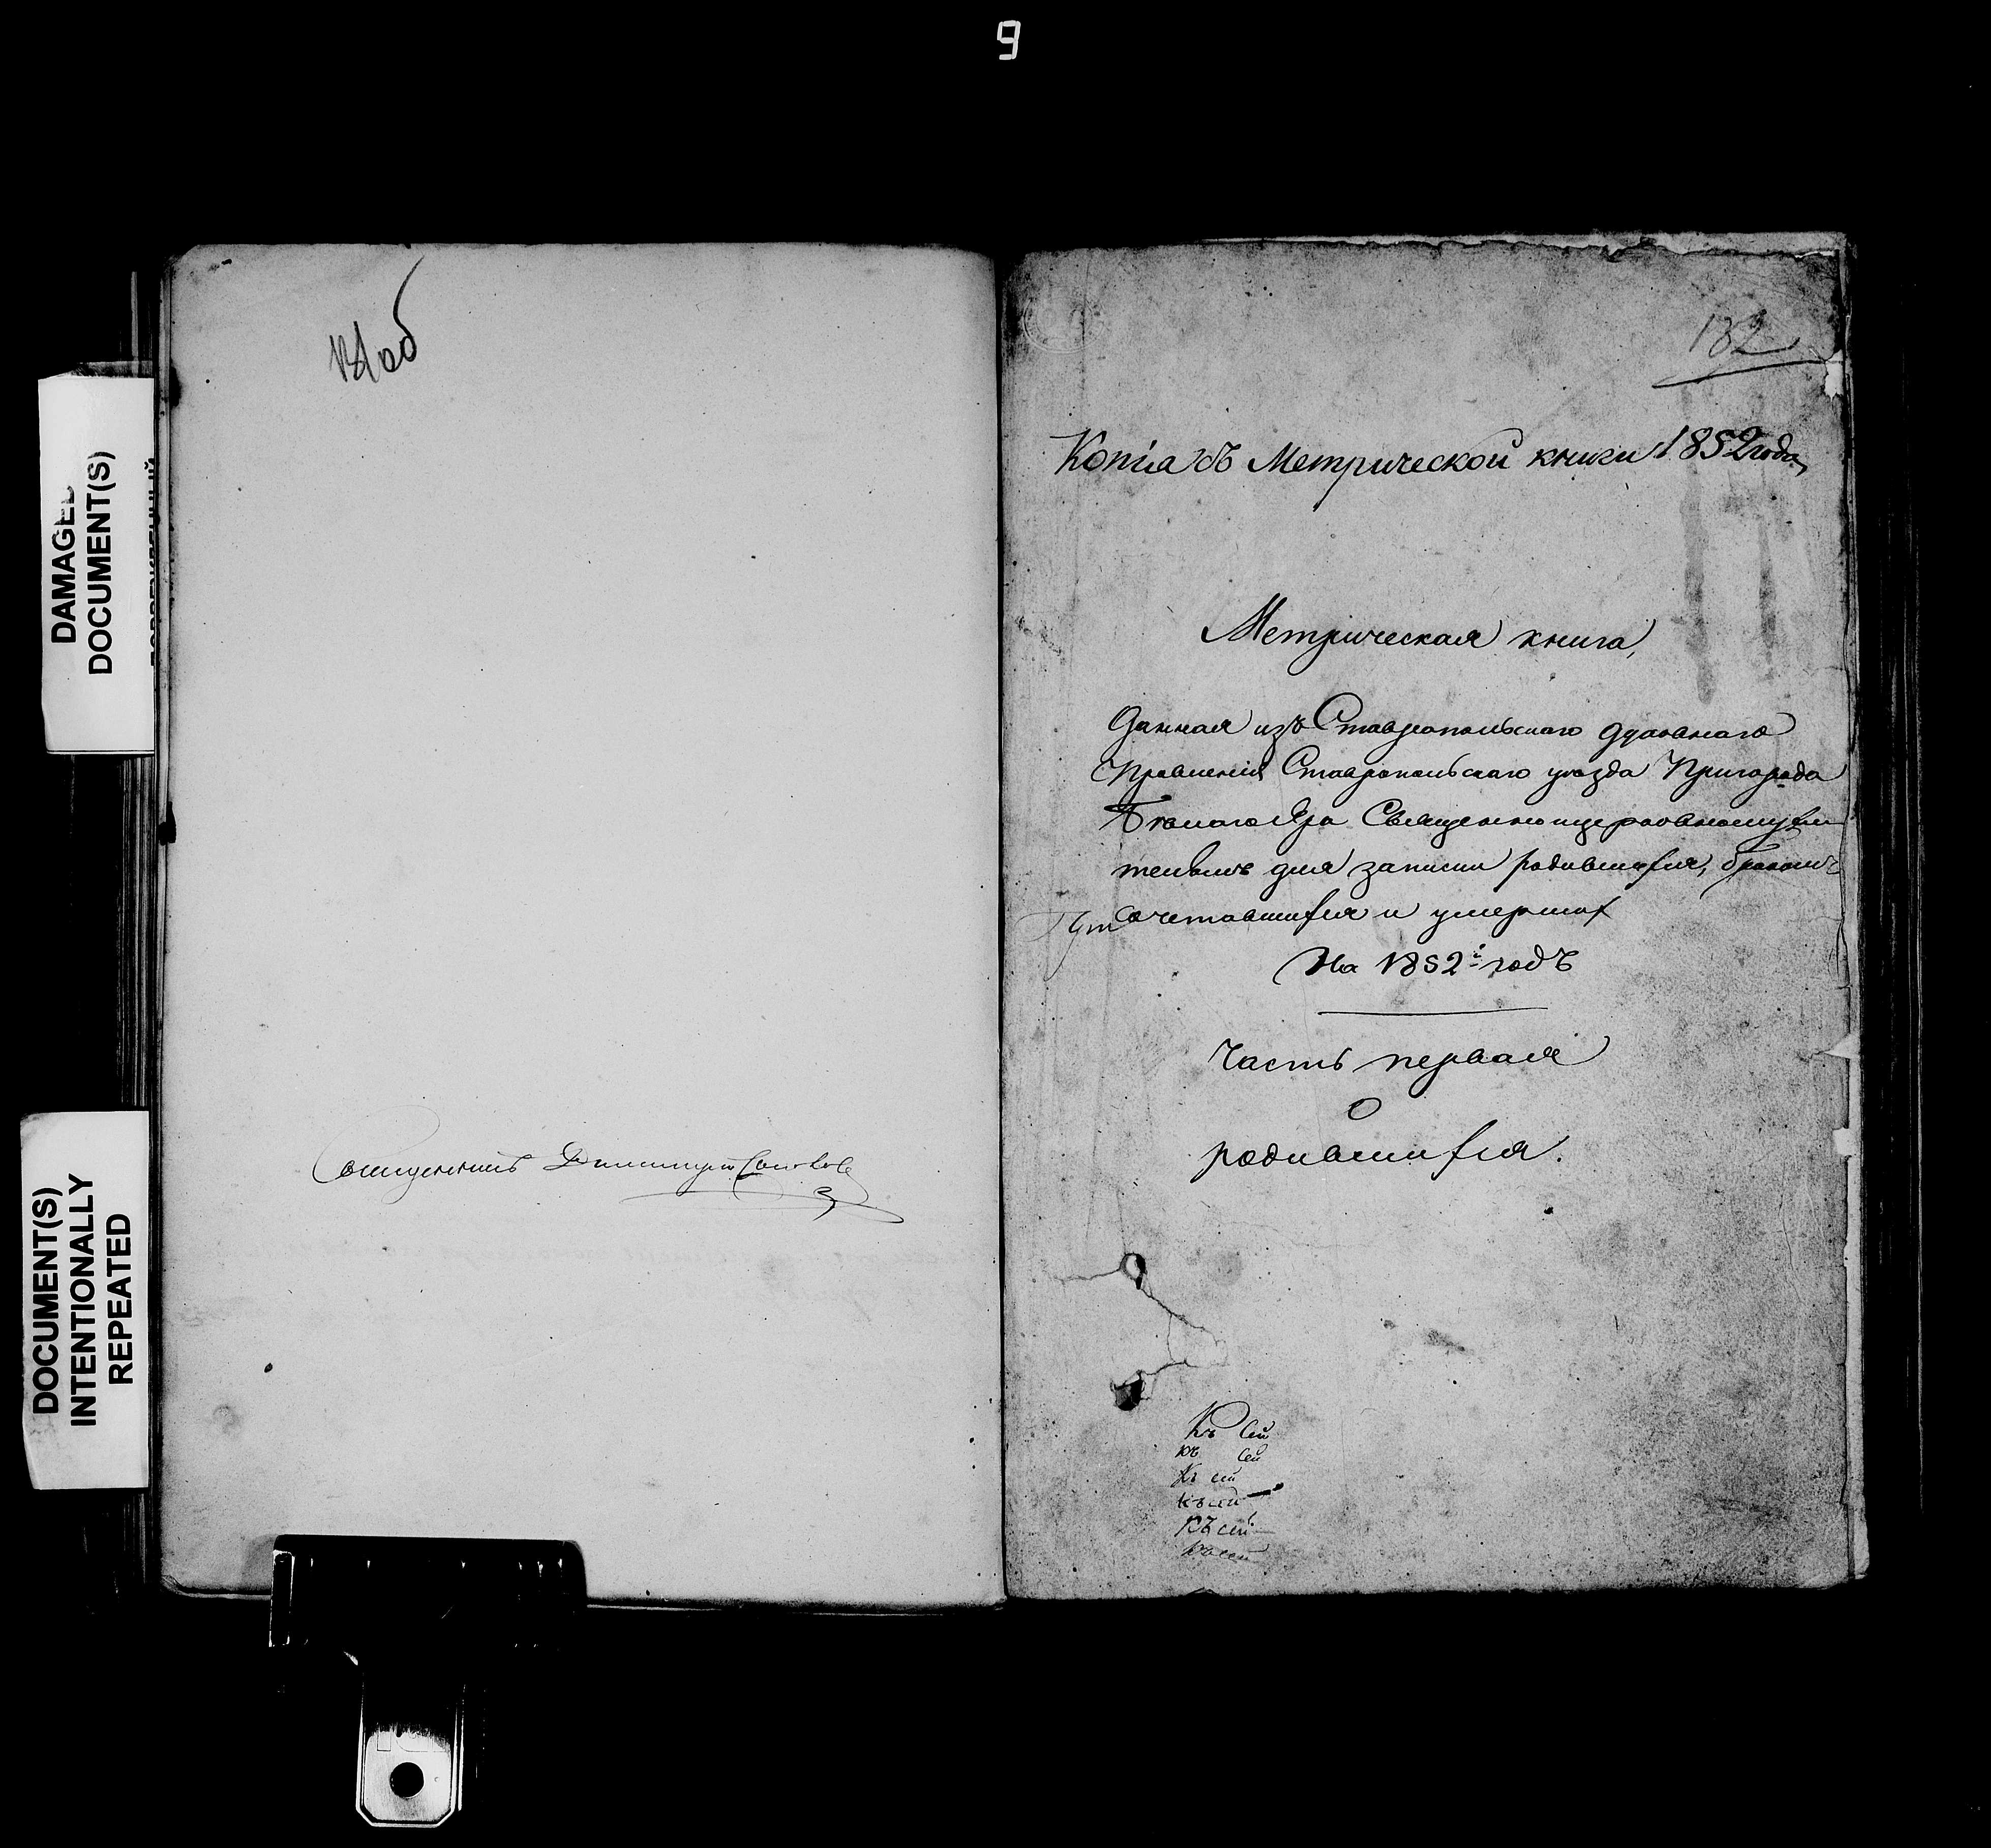 9
DAMAGED
DOCUMENT(S)
DOCUMENT(S)
INTENTIONALLY
REPEATED
181 об
Священникъ Димитрий
182
Копіа съ Метрической книги 1852 года,
Метрическая книга,
Данная изъ Ставропольскаго духовнаго
Правленія Ставропольскаго уѣзда Пригорода
Бѣлаго Яра Священноцерковнослужи
телямъ для записи родившихся, бракомъ
сочетавшихся и умершихъ
На 1852й годъ
Часть первая
О
родившихся.
Къ сей
къ сей
Къ сей
къ сей
Къ сей
къ сей